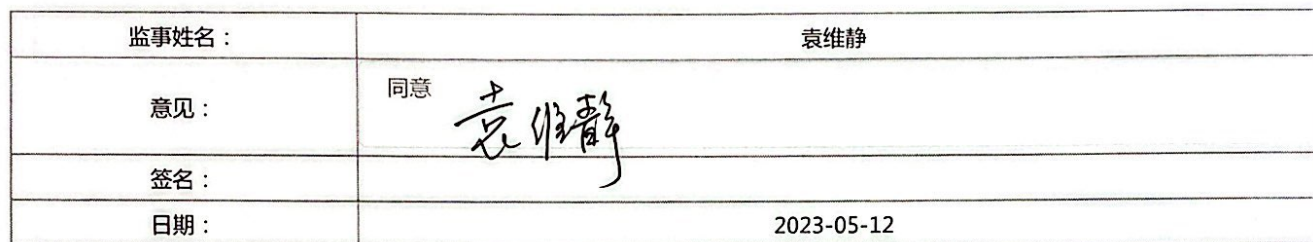 监事姓名： 袁维静
意见： 同意
袁维静
签名：
日期： 2023-05-12